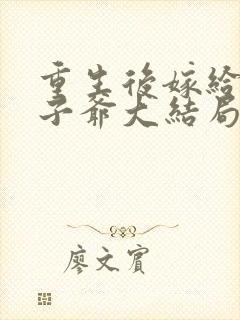 重生後嫁給
子爺大結局
廖文賓